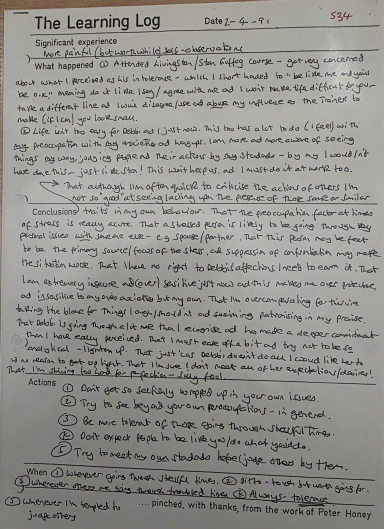 534
The Learning Log Date 2-4-91
Significant experience
More painful (but worthwhile) self-observations
What happened ① Attended Livingston/Stan Guffog course - got very concerned
about what I perceived as his intolerance - which I short handed to "be like me and you'll
be o.k." meaning do it like I say/agree with me and I won't make life difficult for you -
take a different line and I will disagree/use and abuse my influence as the Trainer to
make (if I can) you look small.
② Life isn't too easy for Debbi and I just now. This too has a lot to do (I feel) with
my preoccupation with my anxieties and hangups. I am more and more aware of seeing
things my way, judging people and their actions by my standards - by my I wouldn't
have done this - just like Stan! This won't help us, and I must do it at work too.
That although I'm often quick to criticise the actions of others I'm
not so good at seeing/acting upon the presence of those same or similar
Conclusions traits in my own behaviour. That the preoccupation factor at times
of stress is really acute. That a stressed person is likely to be going through very
personal issues with someone else - e.g. spouse/partner. That this person may be felt
to be the primary source/focus of the stress, and suppression of confrontation may make
the situation worse. That I have no right to Debbi's affections I need to earn it. That
I am extremely insecure and (over) sensitive just now and this makes me over protective
and insensitive to any ones anxieties but my own. That I'm overcompensating for this via
taking the blame for things I ought/shouldn't and seeming patronising in my praise.
That Debbi is going through a lot more than I recognise and has made a deeper commitment
than I have really perceived. That I must ease off a bit and try not to be so
analytical - lighten up. That just 'cos Debbi doesn't do all I would like her to
is no reason to get up tight. That I'm sure I don't meet all of her expectations/desires!
That I'm striving too hard for perfection - silly fool
Actions ① Don't get so selfishly wrapped up in your own issues.
② Try to see beyond your own preoccupations - in general.
③ Be more tolerant of those going through stressful times.
④ Don't expect people to be like you/do what you'd do.
⑤ Try to meet my own standards before I judge others by them.
When ① Whenever going through stressful times. ② Ditto - tough but worth going for.
③ Whenever others are going through troubled times ④ Always tolerance
⑤ Whenever I'm tempted to
judge others
....pinched, with thanks, from the work of Peter Honey